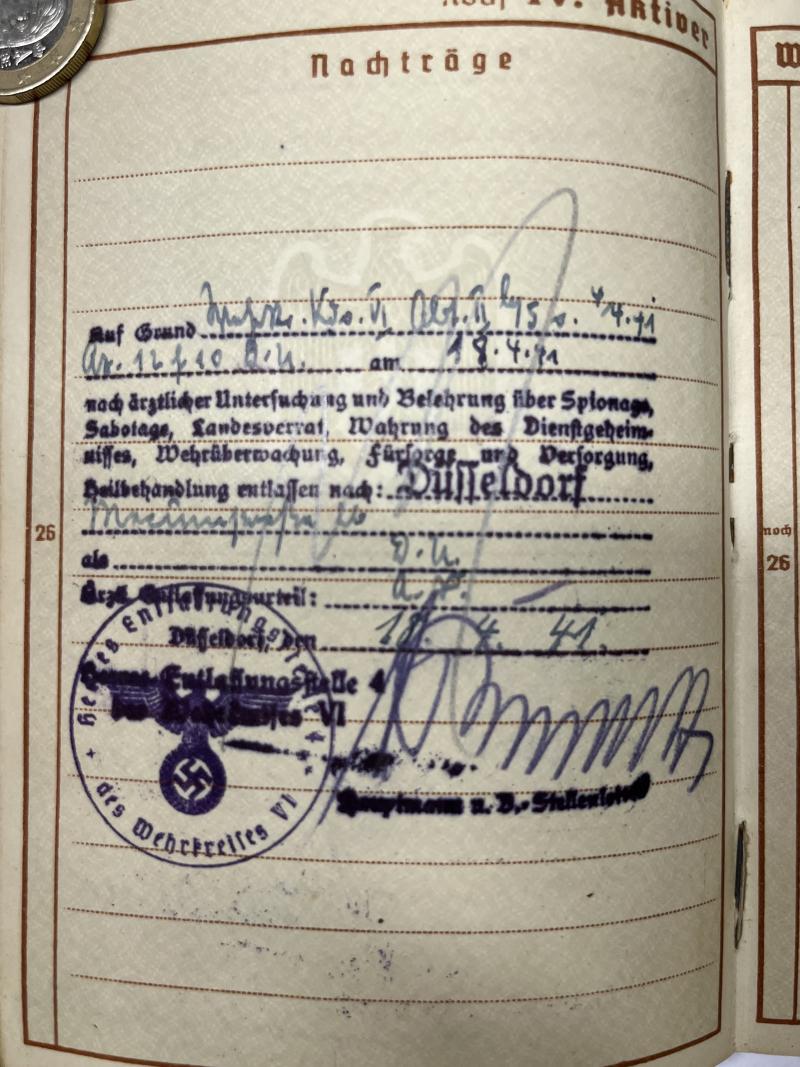 IV. Aktiver
Nachträge
W
Auf Grund Wehrkr. Kdo. VI Abt. II
Az. 12 f 10 am 18.4.41
nach ärztlicher Untersuchung und Belehrung über Spionage,
Sabotage, Landesverrat, Wahrung des Dienstgeheim-
nisses, Wehrüberwachung, Fürsorge und Versorgung,
Heilbehandlung entlassen nach: Düsseldorf
26
noch
26
als D. U.
Ärztl. Entlassungsurteil:
Düsseldorf, den 18. 4. 41.
Heeres-Entlassungsstelle 4
des Wehrkreises VI
Hauptmann u. D.-Stellenleiter
Heeres Entlassungsstelle 4
des Wehrkreises VI